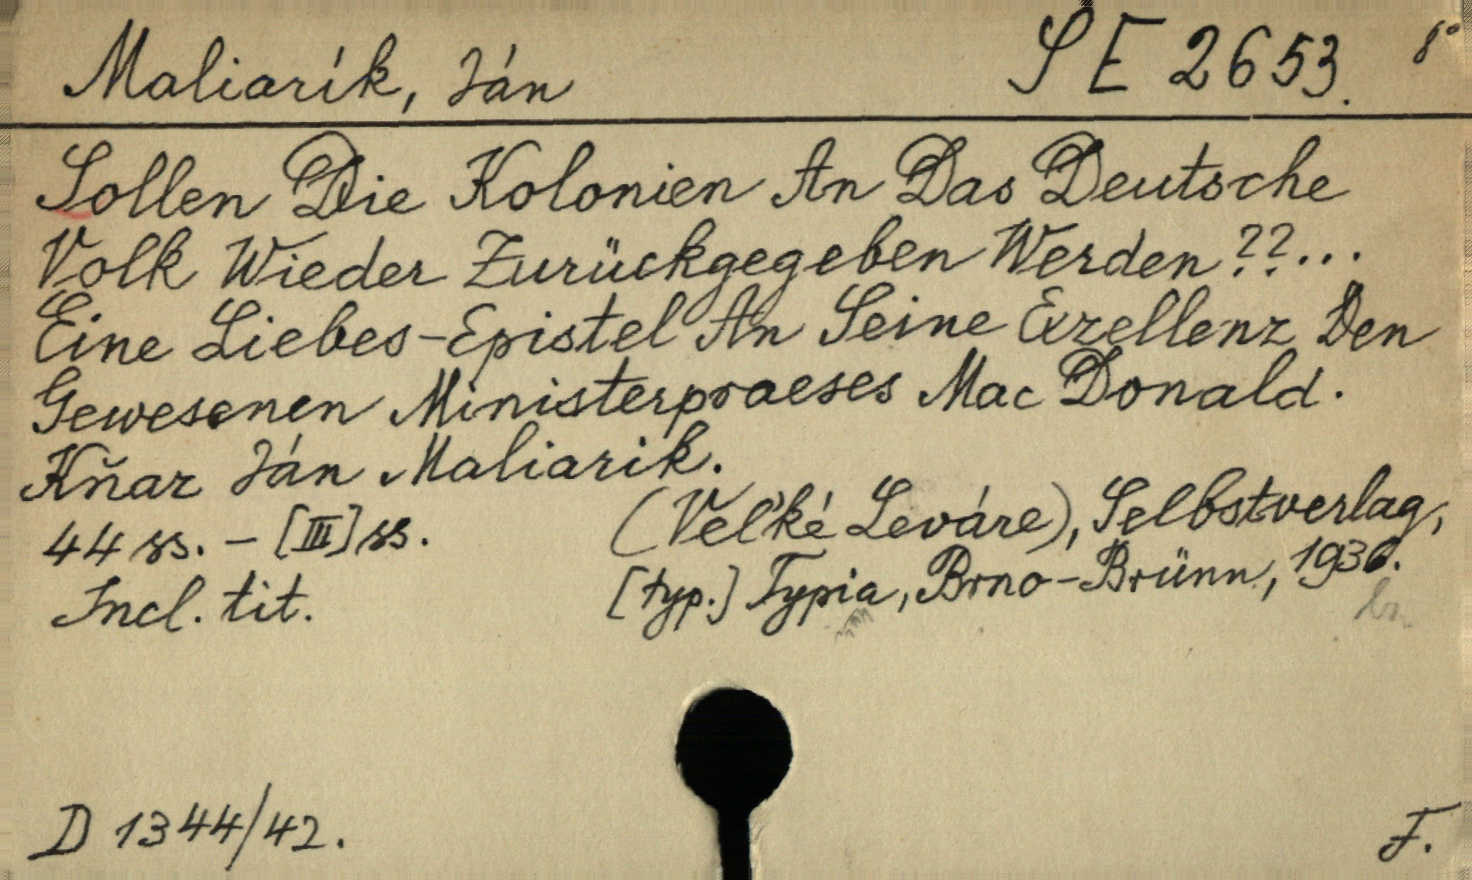 Maliarík, Ján
SE 2653. 8°
Sollen Die Kolonien An Das Deutsche
Volk Wieder Zurückgegeben Werden??...
Eine Liebes-Epistel An Seine Exzellenz Den
Gewesenen Ministerpraeses Mac Donald.
Kňaz Ján Maliarik.
44 ss. - [III] ss.
(Veľké Leváre), Selbstverlag,
Incl. tit.
[typ.] Typia, Brno-Brünn, 1936.
D 1344/42.
F.